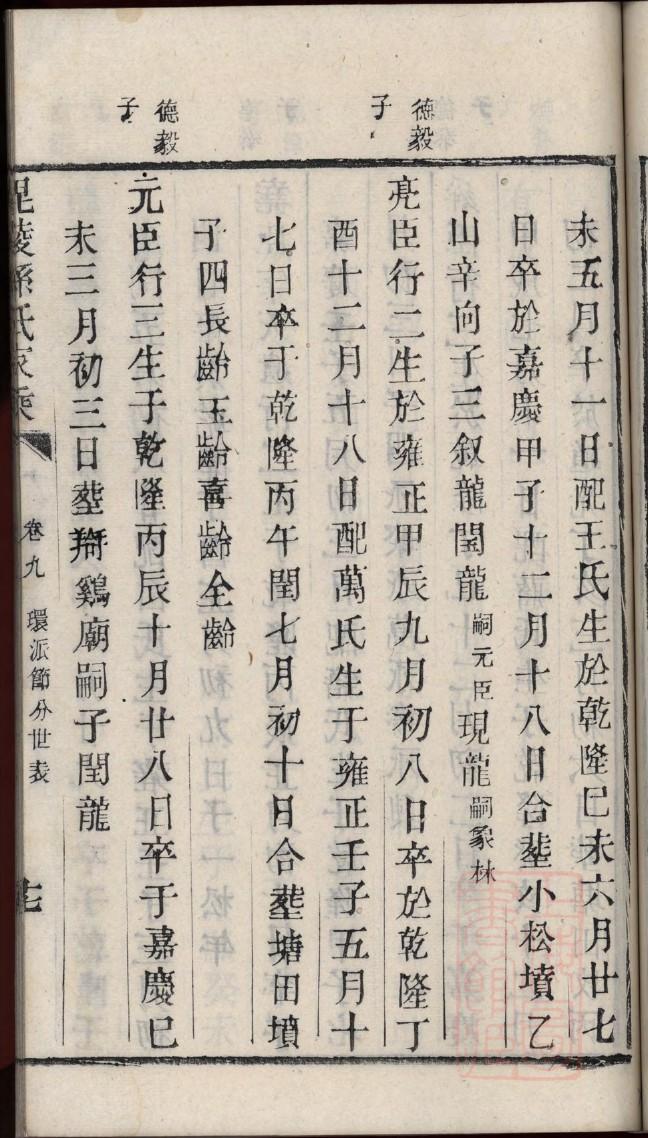 未五月十一日配王氏生於乾隆己未六月廿七
日卒於嘉慶甲子十二月十八日合塟小松墳乙
山辛向子三叙龍閏龍嗣元臣現龍嗣象林
德毅
子
亮臣行二生於雍正甲辰九月初八日卒於乾隆丁
酉十二月十八日配萬氏生于雍正壬子五月十
七日卒于乾隆丙午閏七月初十日合塟塘田墳
子四長齡玉齡喜齡全齡
德毅
子
元臣行三生于乾隆丙辰十月廿八日卒于嘉慶己
未三月初三日塟搿鷄廟嗣子閏龍
毘陵孫氏家乘
卷九
環派節分世表
七